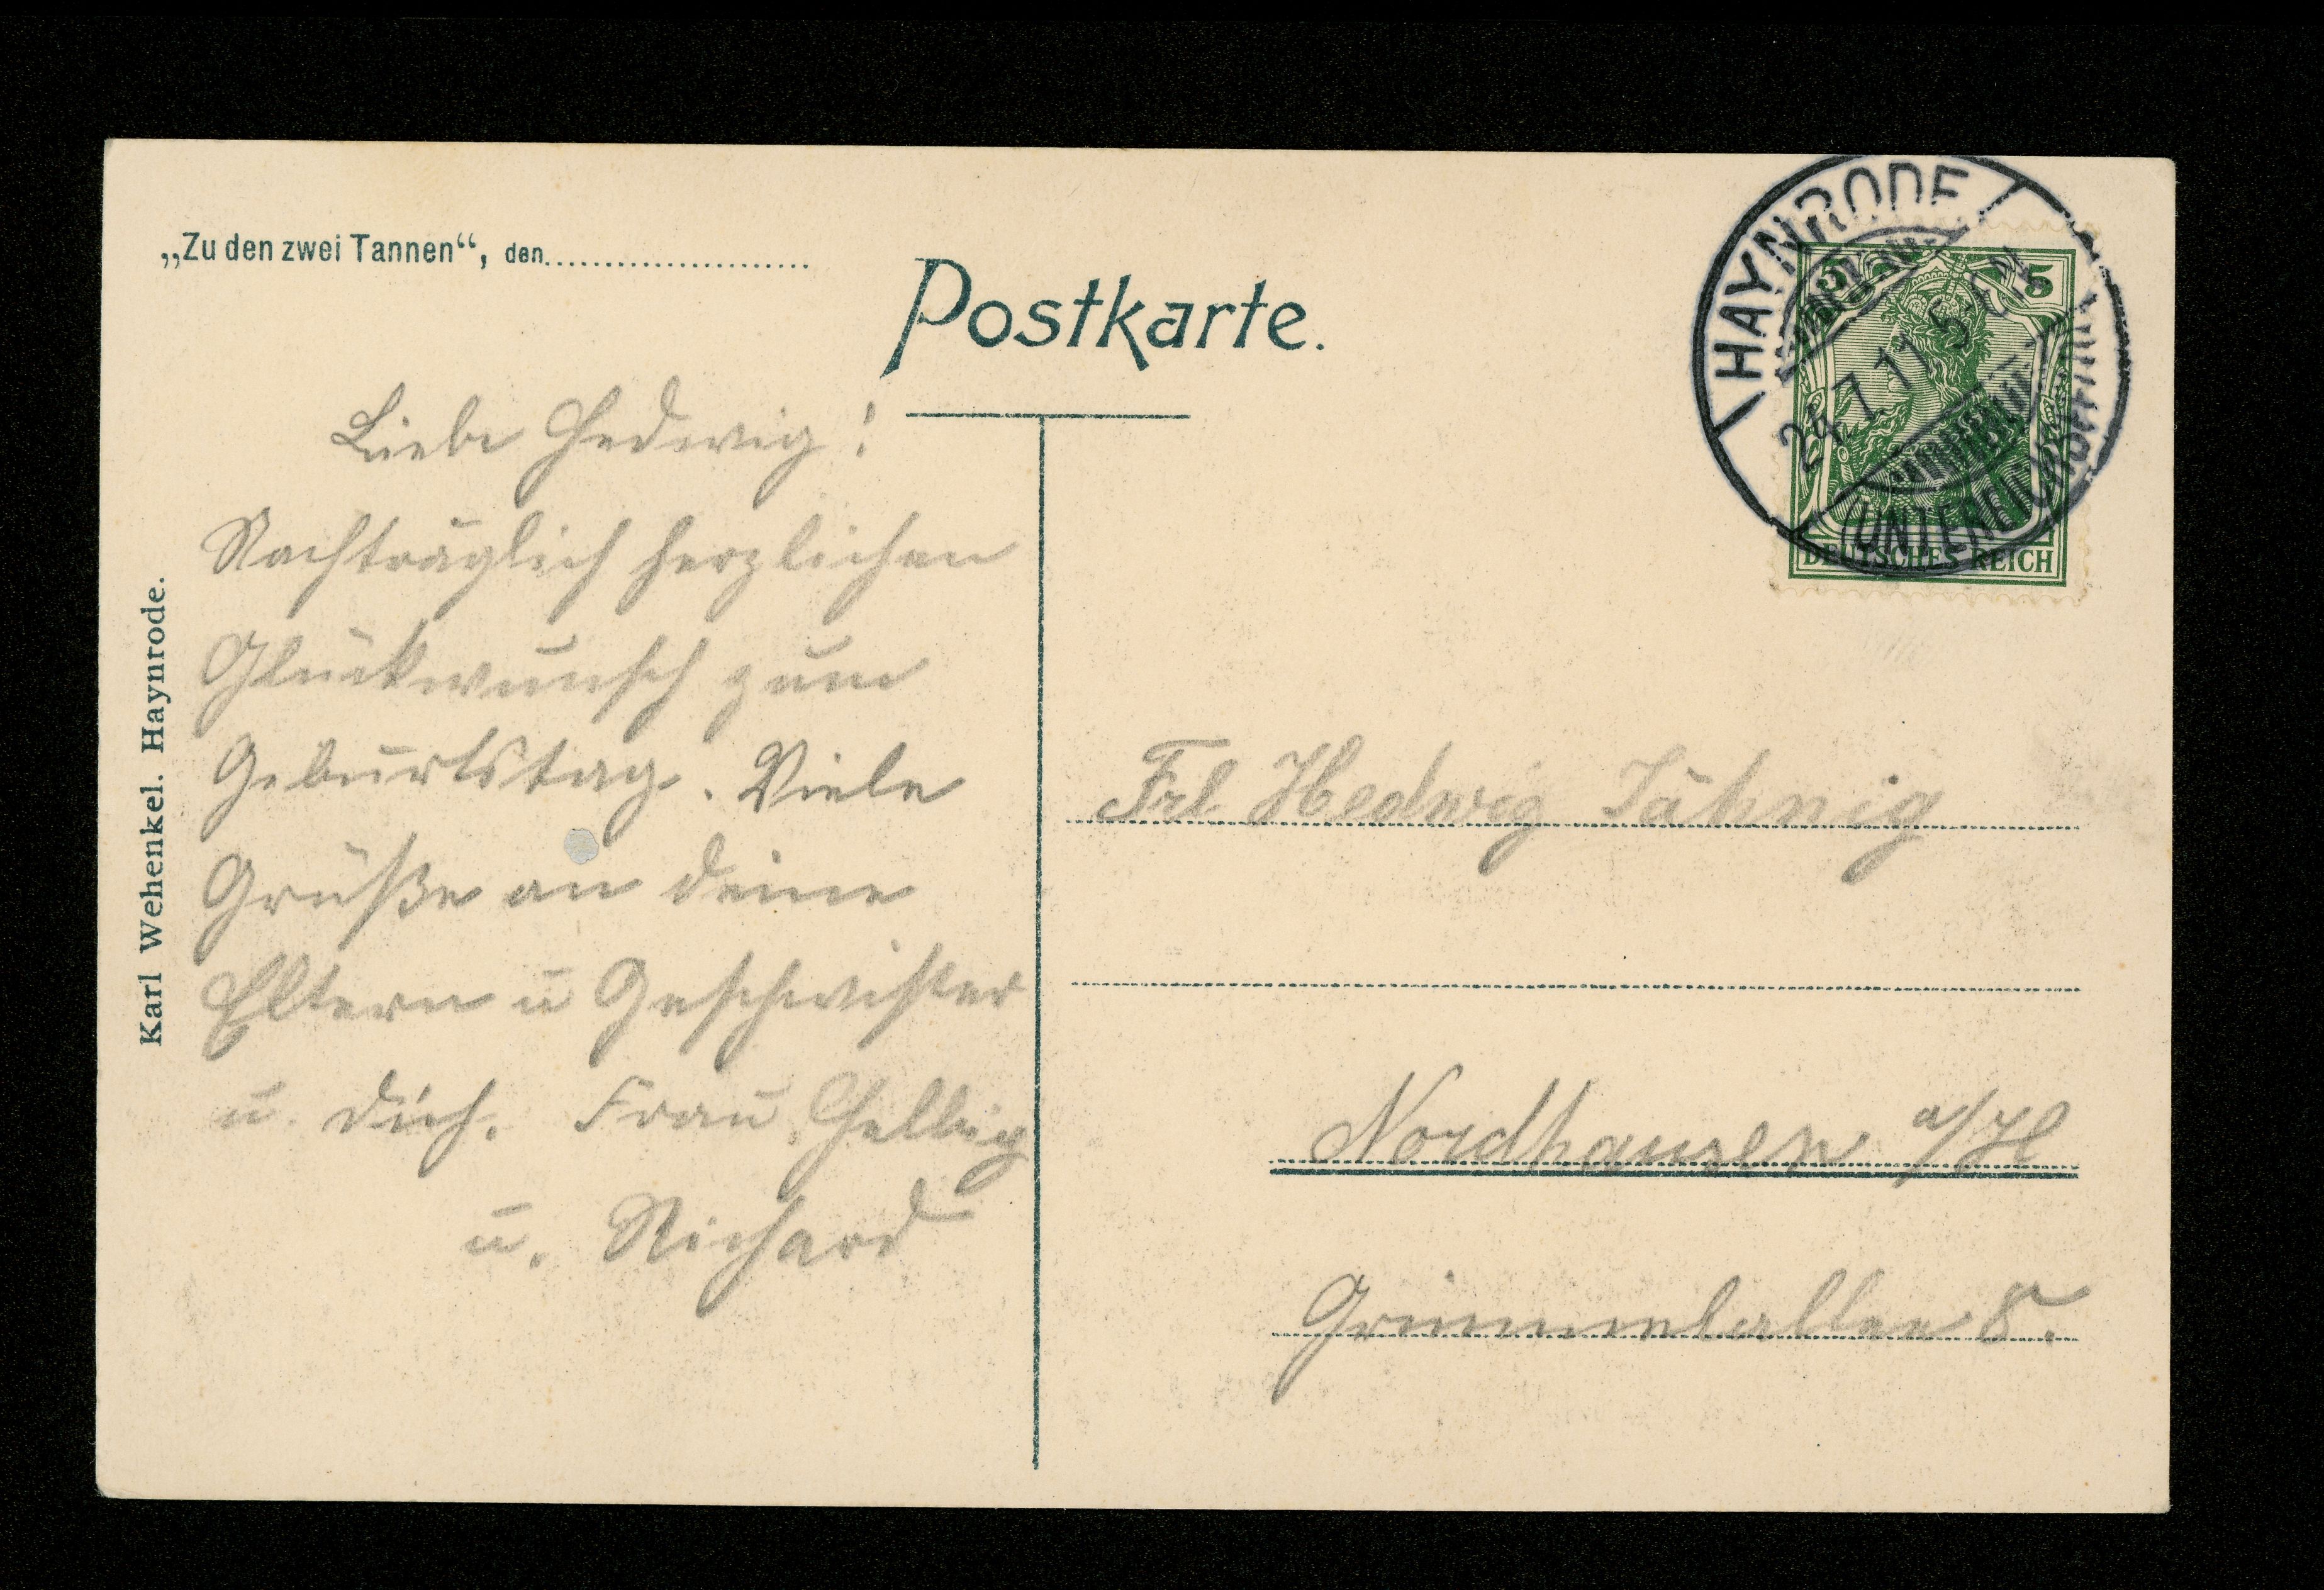 „Zu den zwei Tannen“, den
Postkarte.
Karl Wehenkel. Haynrode.
Liebe Hedwig!
Nachträglich herzlichen
Glückwunsch zum
Geburtstag. Viele
Grüße an deine
Eltern u Geschwister
u. dich. Frau Helbig
u. Richard
HAYNRODE
24.7.11.5-6N
5 5
DEUTSCHES REICH
Frl. Hedwig Jähnig
Nordhausen a/H
Grimmelallee 8.